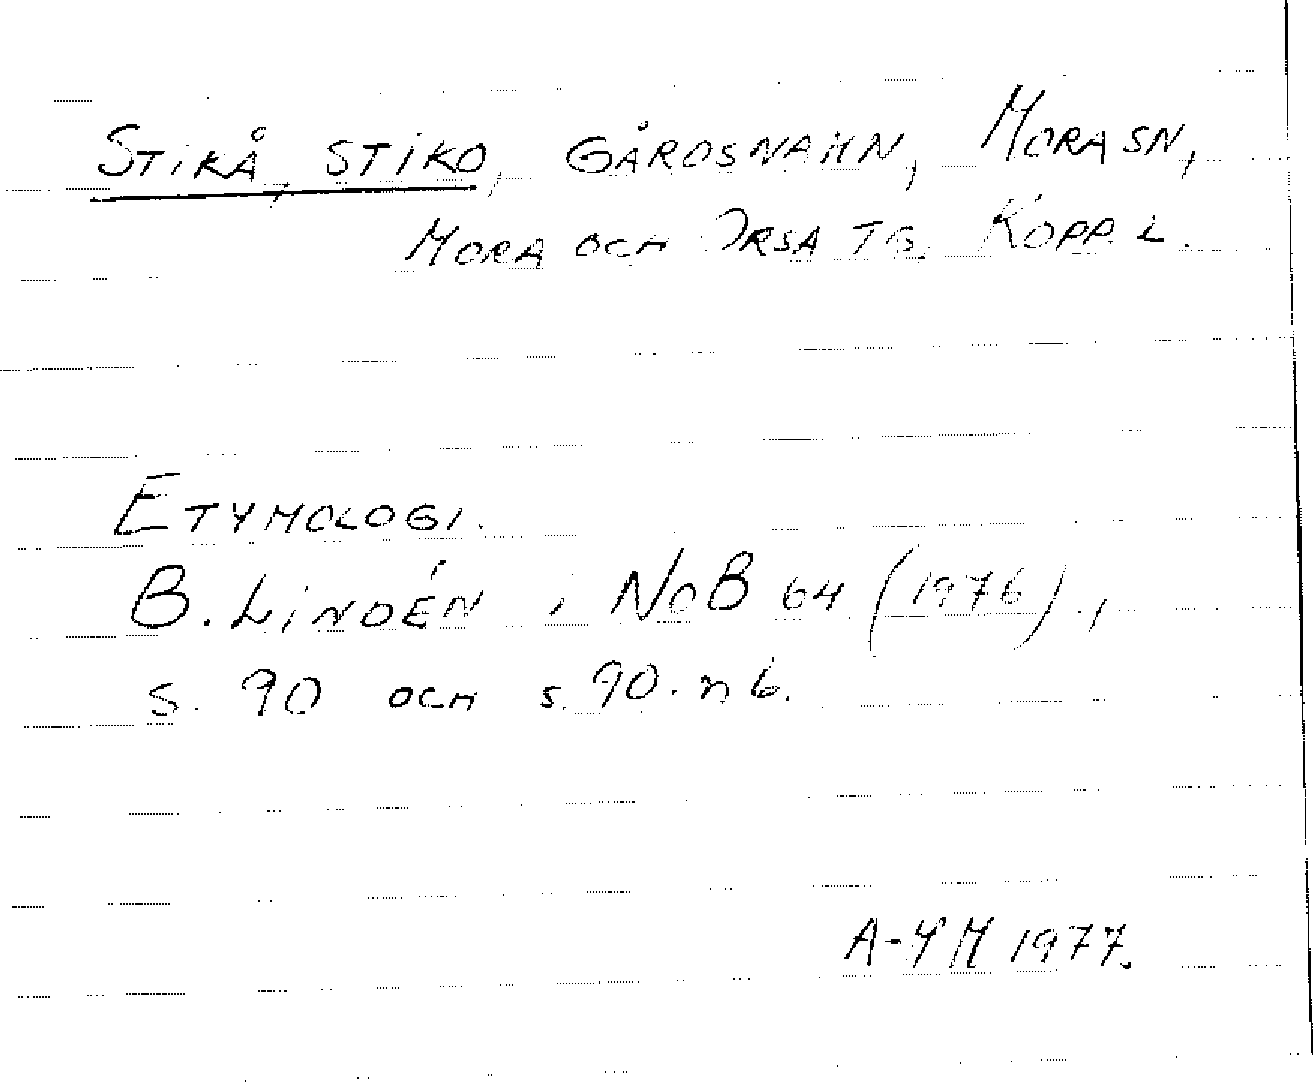 STIKÅ, STIKO, GÅRDSNAMN, MORA SN,
MORA OCH ORSA TG. KOPP. L.
ETYMOLOGI.
B. LINDÉN i NoB 64 (1976),
s. 90 OCH s. 90. n 6.
A-YM 1977.